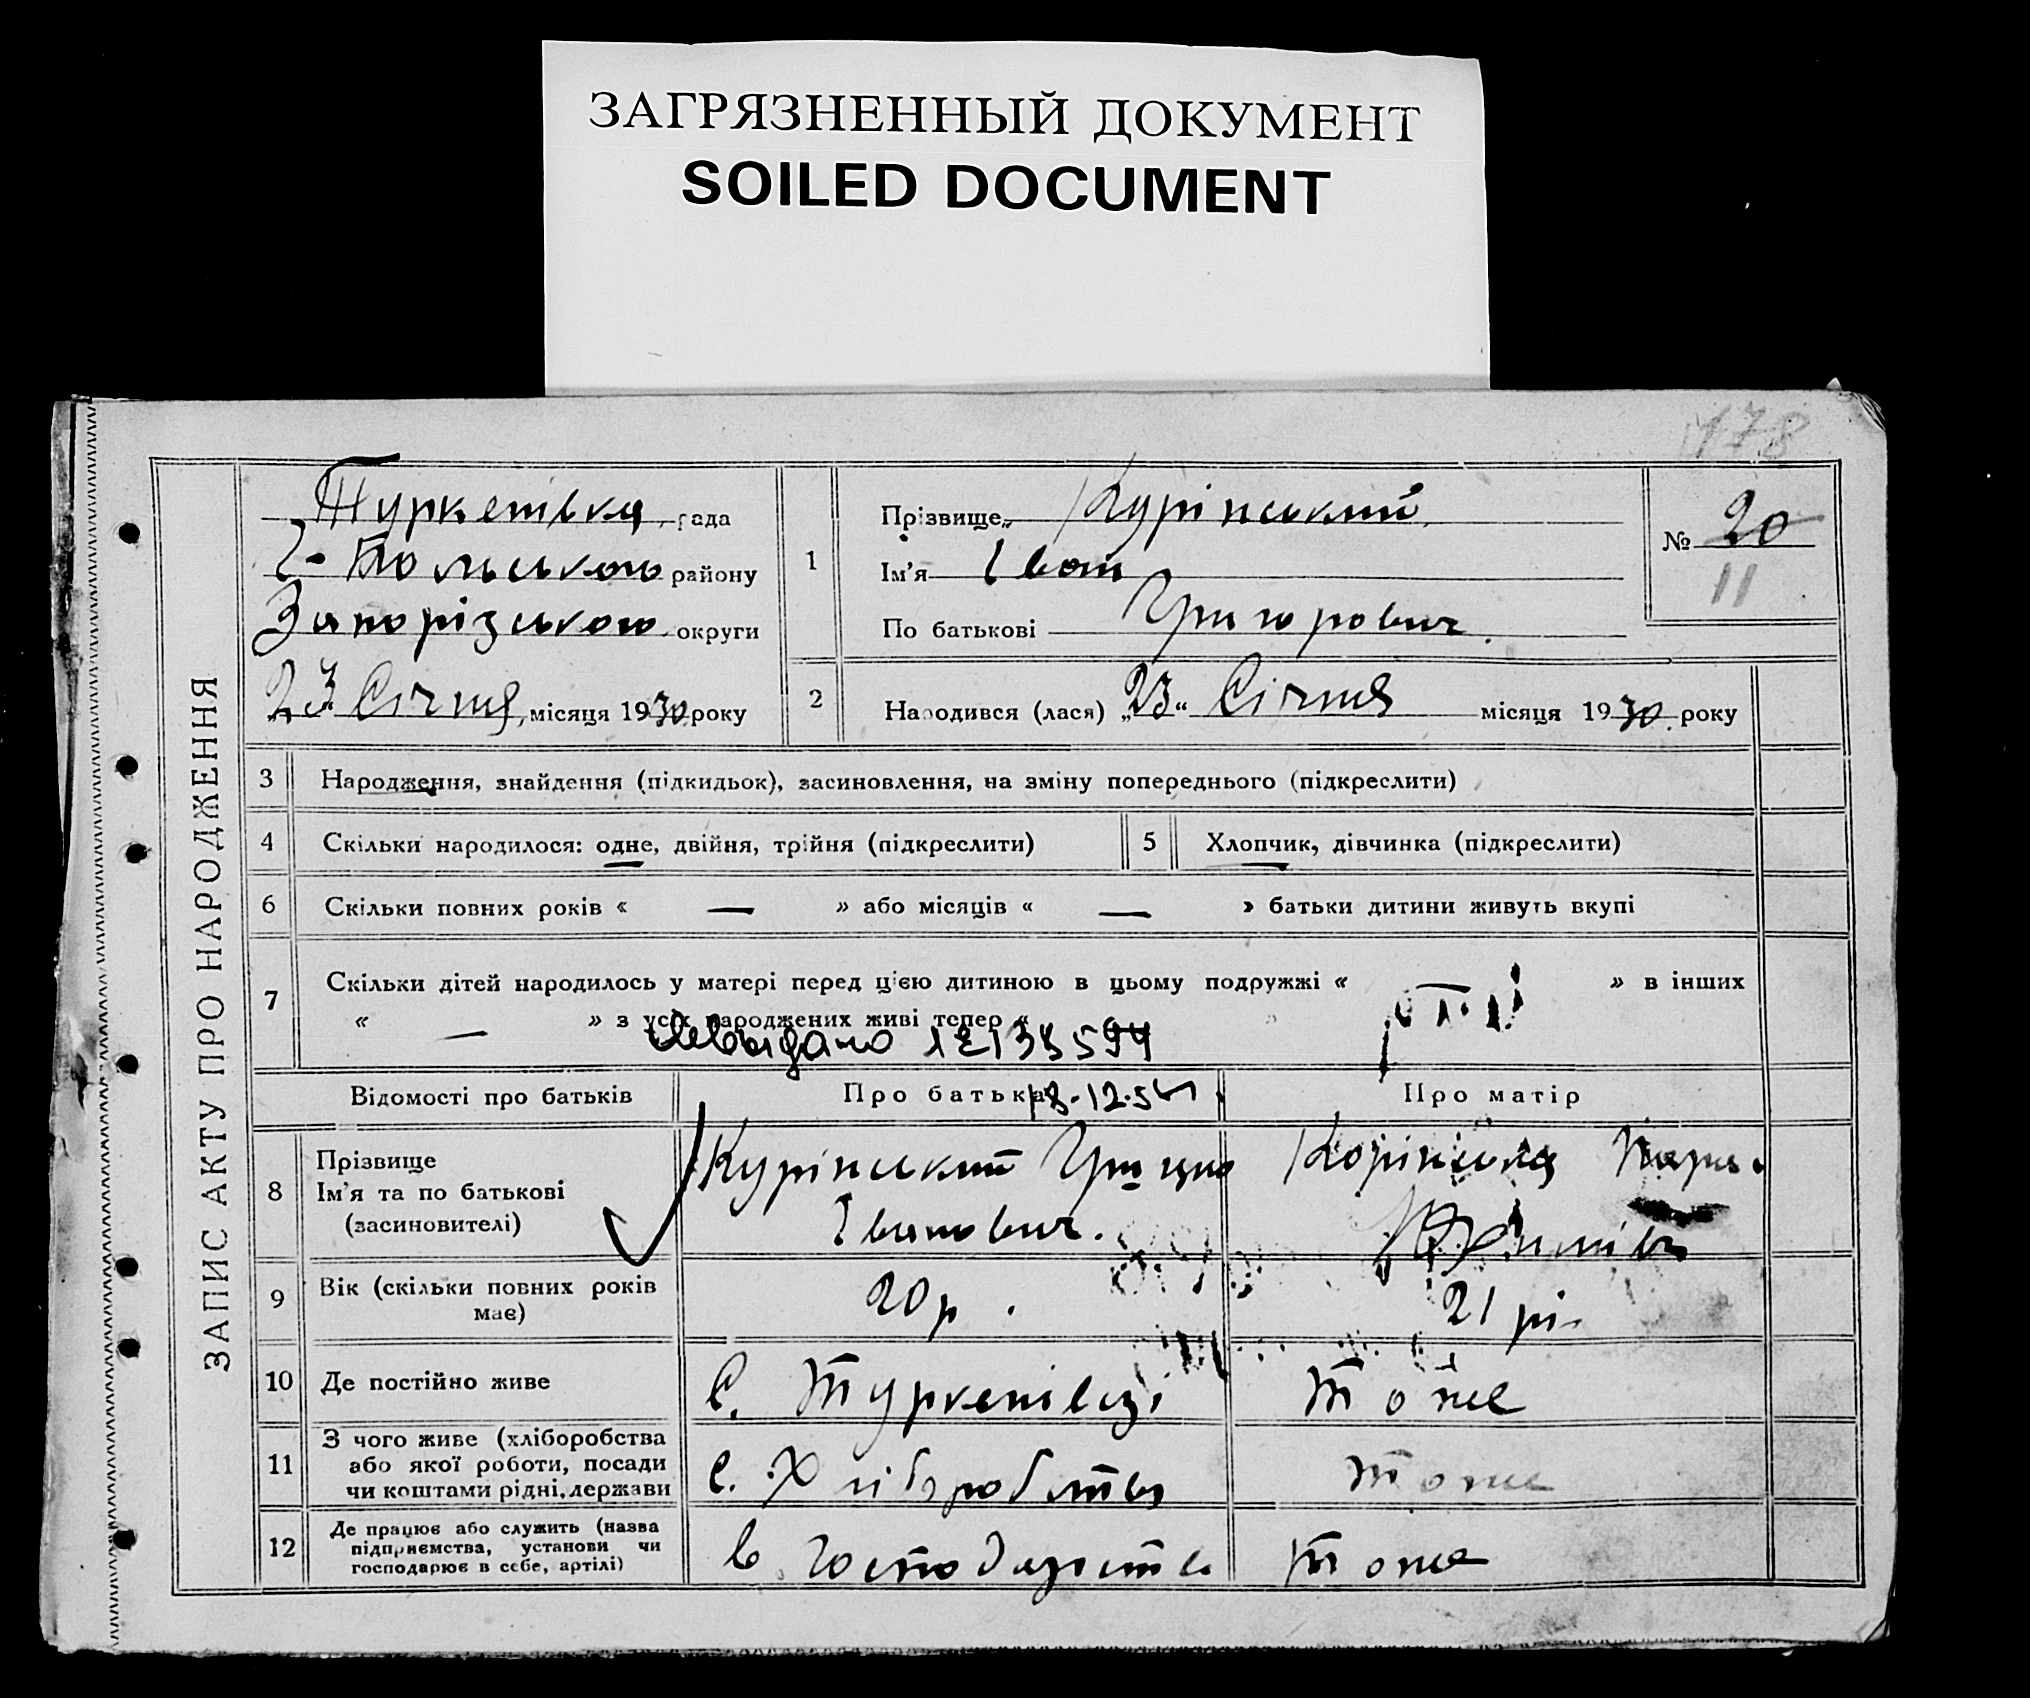 ЗАГРЯЗНЕННЫЙ ДОКУМЕНТ
SOILED DOCUMENT
178
ЗАПИС АКТУ ПРО НАРОДЖЕННЯ
Туркенівка рада
Г-Польського району
Запорізького округи
23 Січня місяця 1930 року
1
Прізвище Курінський
Ім'я Іван
По батькові Григорович
№ 20
11
2 Народився (лася) „23“ Січня місяця 1930 року
3 Народження, знайдення (підкидьок), засиновлення, на зміну попереднього (підкреслити)
4 Скільки народилося: одне, двійня, трійня (підкреслити) 5 Хлопчик, дівчинка (підкреслити)
6 Скільки повних років « — » або місяців « — » батьки дитини живуть вкупі
7 Скільки дітей народилось у матері перед цією дитиною в цьому подружжі « » в інших
« — » з усіх народжених живі тепер « »
Відомості про батьків Про батька Про матір
8 Прізвище
Ім'я та по батькові
(засиновителі)
Курінський Грицко
Іванович.
9 Вік (скільки повних років має)
20 р. 21 рі.
10 Де постійно живе с. Туркенівці тоже
11 З чого живе (хліборобства
або якої роботи, посади
чи коштами рідні, держави
с. Хліборобства тоже
12 Де працює або служить (назва
підприємства, установи чи
господарює в себе, артілі)
в господарстві тоже